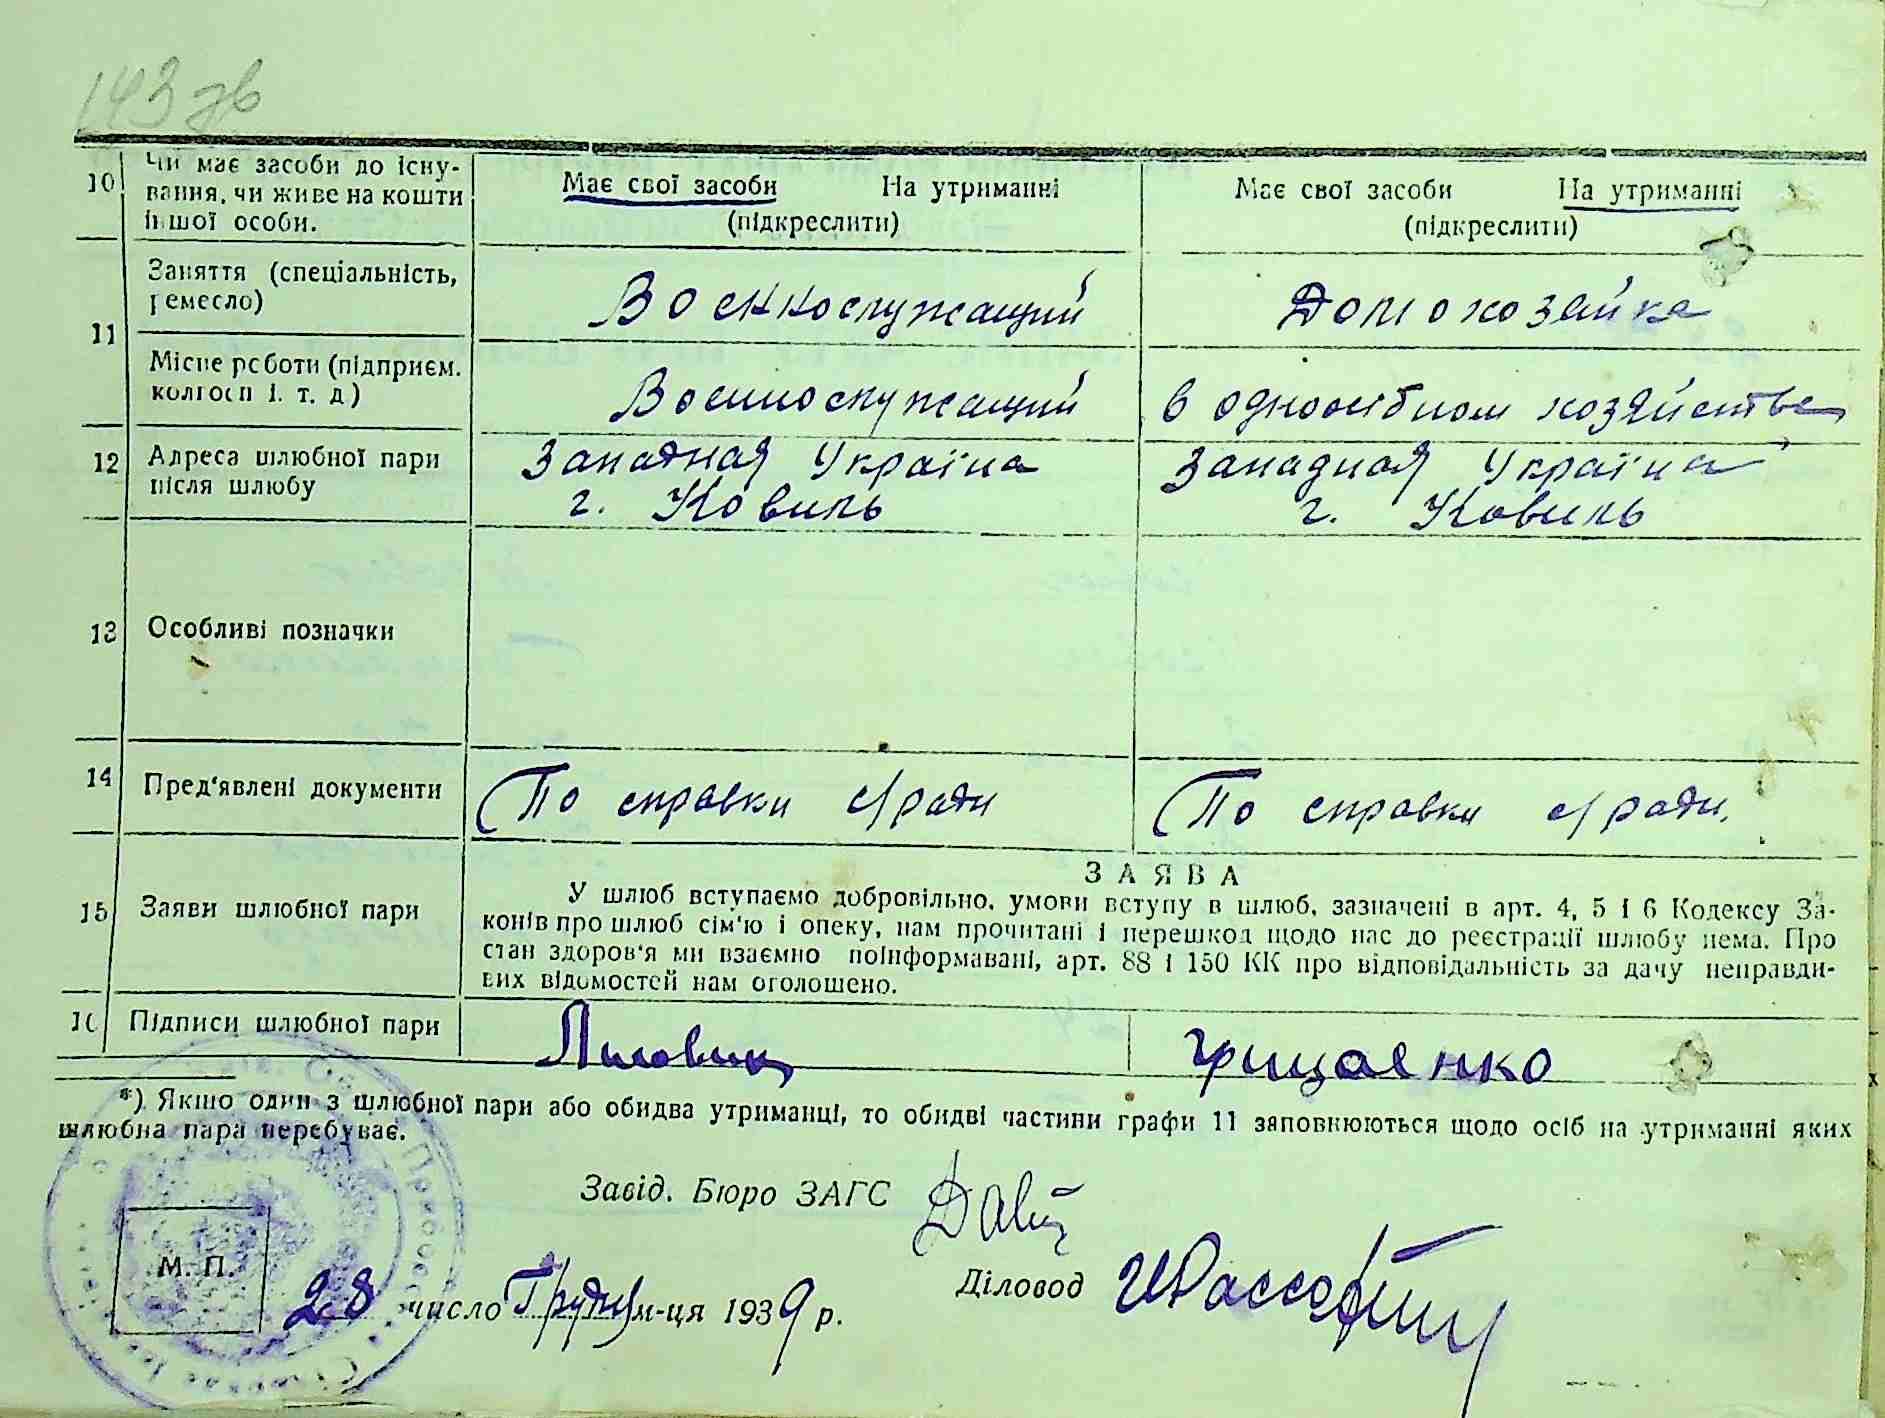 143 зв
10 Чи має засоби до існу-
вання, чи живе на кошти
іншої особи.
Має свої засоби На утриманні
(підкреслити)
Має свої засоби На утриманні
(підкреслити)
11 Заняття (спеціальність,
ремесло)
Военнослужащий
Домохозяйка
Місце роботи (підприєм.
колгосп і. т. д)
Военнослужащий
в одноосібном хозяйстве
12 Адреса шлюбної пари
після шлюбу
Западная Україна
г. Ковиль
Западная Україна
г. Ковиль
13 Особливі позначки
14 Пред'явлені документи
По справки с/ради
По справки с/ради.
15 Заяви шлюбної пари
ЗАЯВА
У шлюб вступаємо добровільно, умови вступу в шлюб, зазначені в арт. 4, 5 і 6 Кодексу За-
конів про шлюб сім'ю і опеку, нам прочитані і перешкод щодо нас до реєстрації шлюбу нема. Про
стан здоров'я ми взаємно поінформавані, арт. 88 і 150 КК про відповідальність за дачу неправди-
вих відомостей нам оголошено.
16 Підписи шлюбної пари
Грицаенко
*) Якщо один з шлюбної пари або обидва утриманці, то обидві частини графи 11 заповнюються щодо осіб на утриманні яких
шлюбна пара перебуває.
Завід. Бюро ЗАГС
М. П.
Діловод
28 число Грудня м-ця 1939 р.